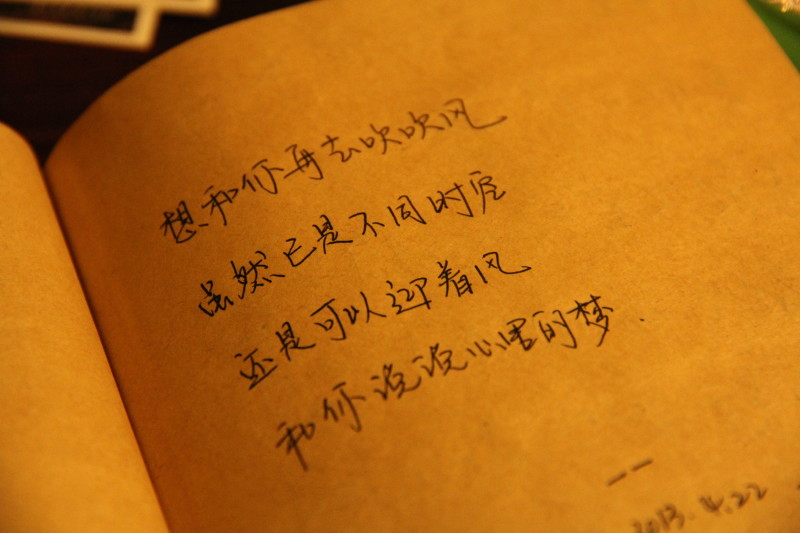 想和你再去吹吹风
虽然已是不同时空
还是可以迎着风
和你说说心里的梦.
——
2013.4.22